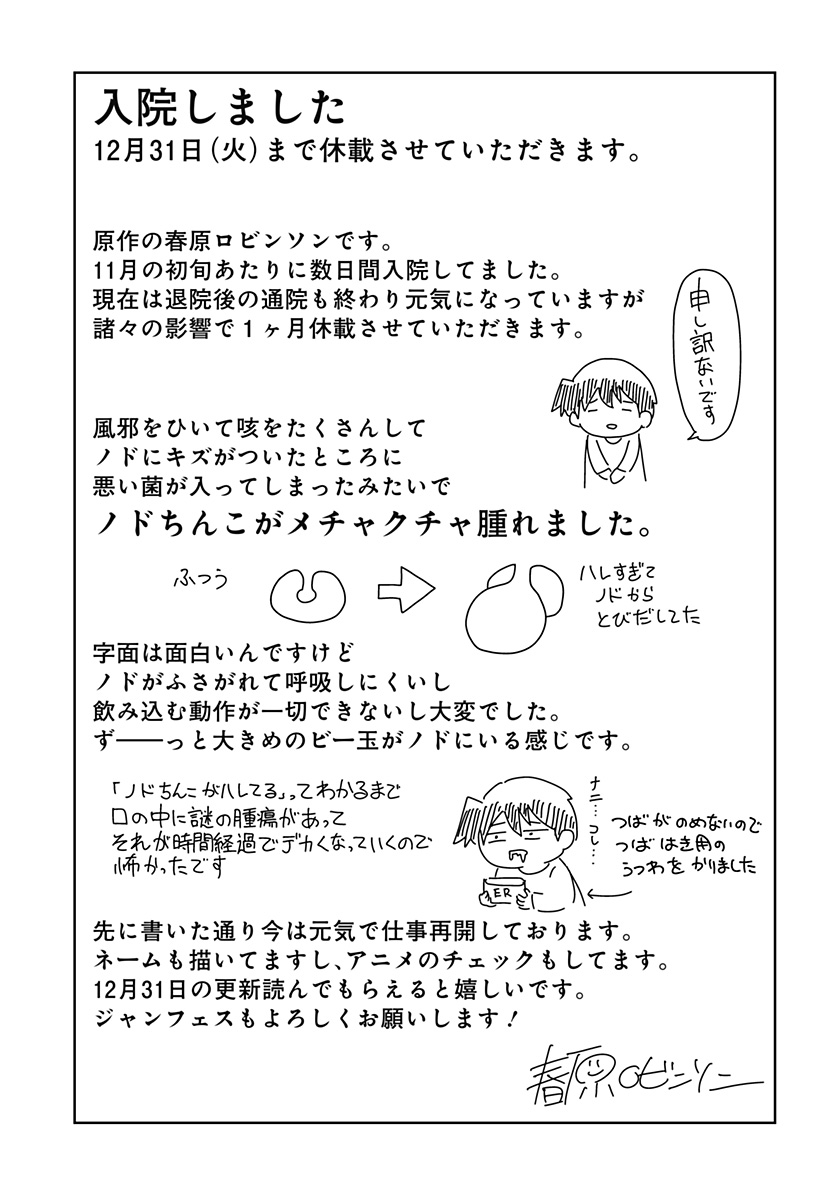 入院しました
12月31日(火)まで休載させていただきます。
原作の春原ロビンソンです。
11月の初旬あたりに数日間入院してました。
現在は退院後の通院も終わり元気になっていますが
諸々の影響で1ヶ月休載させていただきます。
申し訳ないです
風邪をひいて咳をたくさんして
ノドにキズがついたところに
悪い菌が入ってしまったみたいで
ノドちんこがメチャクチャ腫れました。
ふつう
ハレすぎて
ノドから
とびだしてた
字面は面白いんですけど
ノドがふさがれて呼吸しにくいし
飲み込む動作が一切できないし大変でした。
ず――っと大きめのビー玉がノドにいる感じです。
「ノドちんこがハレてる」ってわかるまで
口の中に謎の腫瘍があって
それが時間経過でデカくなっていくので
怖かったです
ナニ…コレ…
つばがのめないので
つばはき用の
うつわをかりました
ER
先に書いた通り今は元気で仕事再開しております。
ネームも描いてますし、アニメのチェックもしてます。
12月31日の更新読んでもらえると嬉しいです。
ジャンフェスもよろしくお願いします!
春原ロビンソン